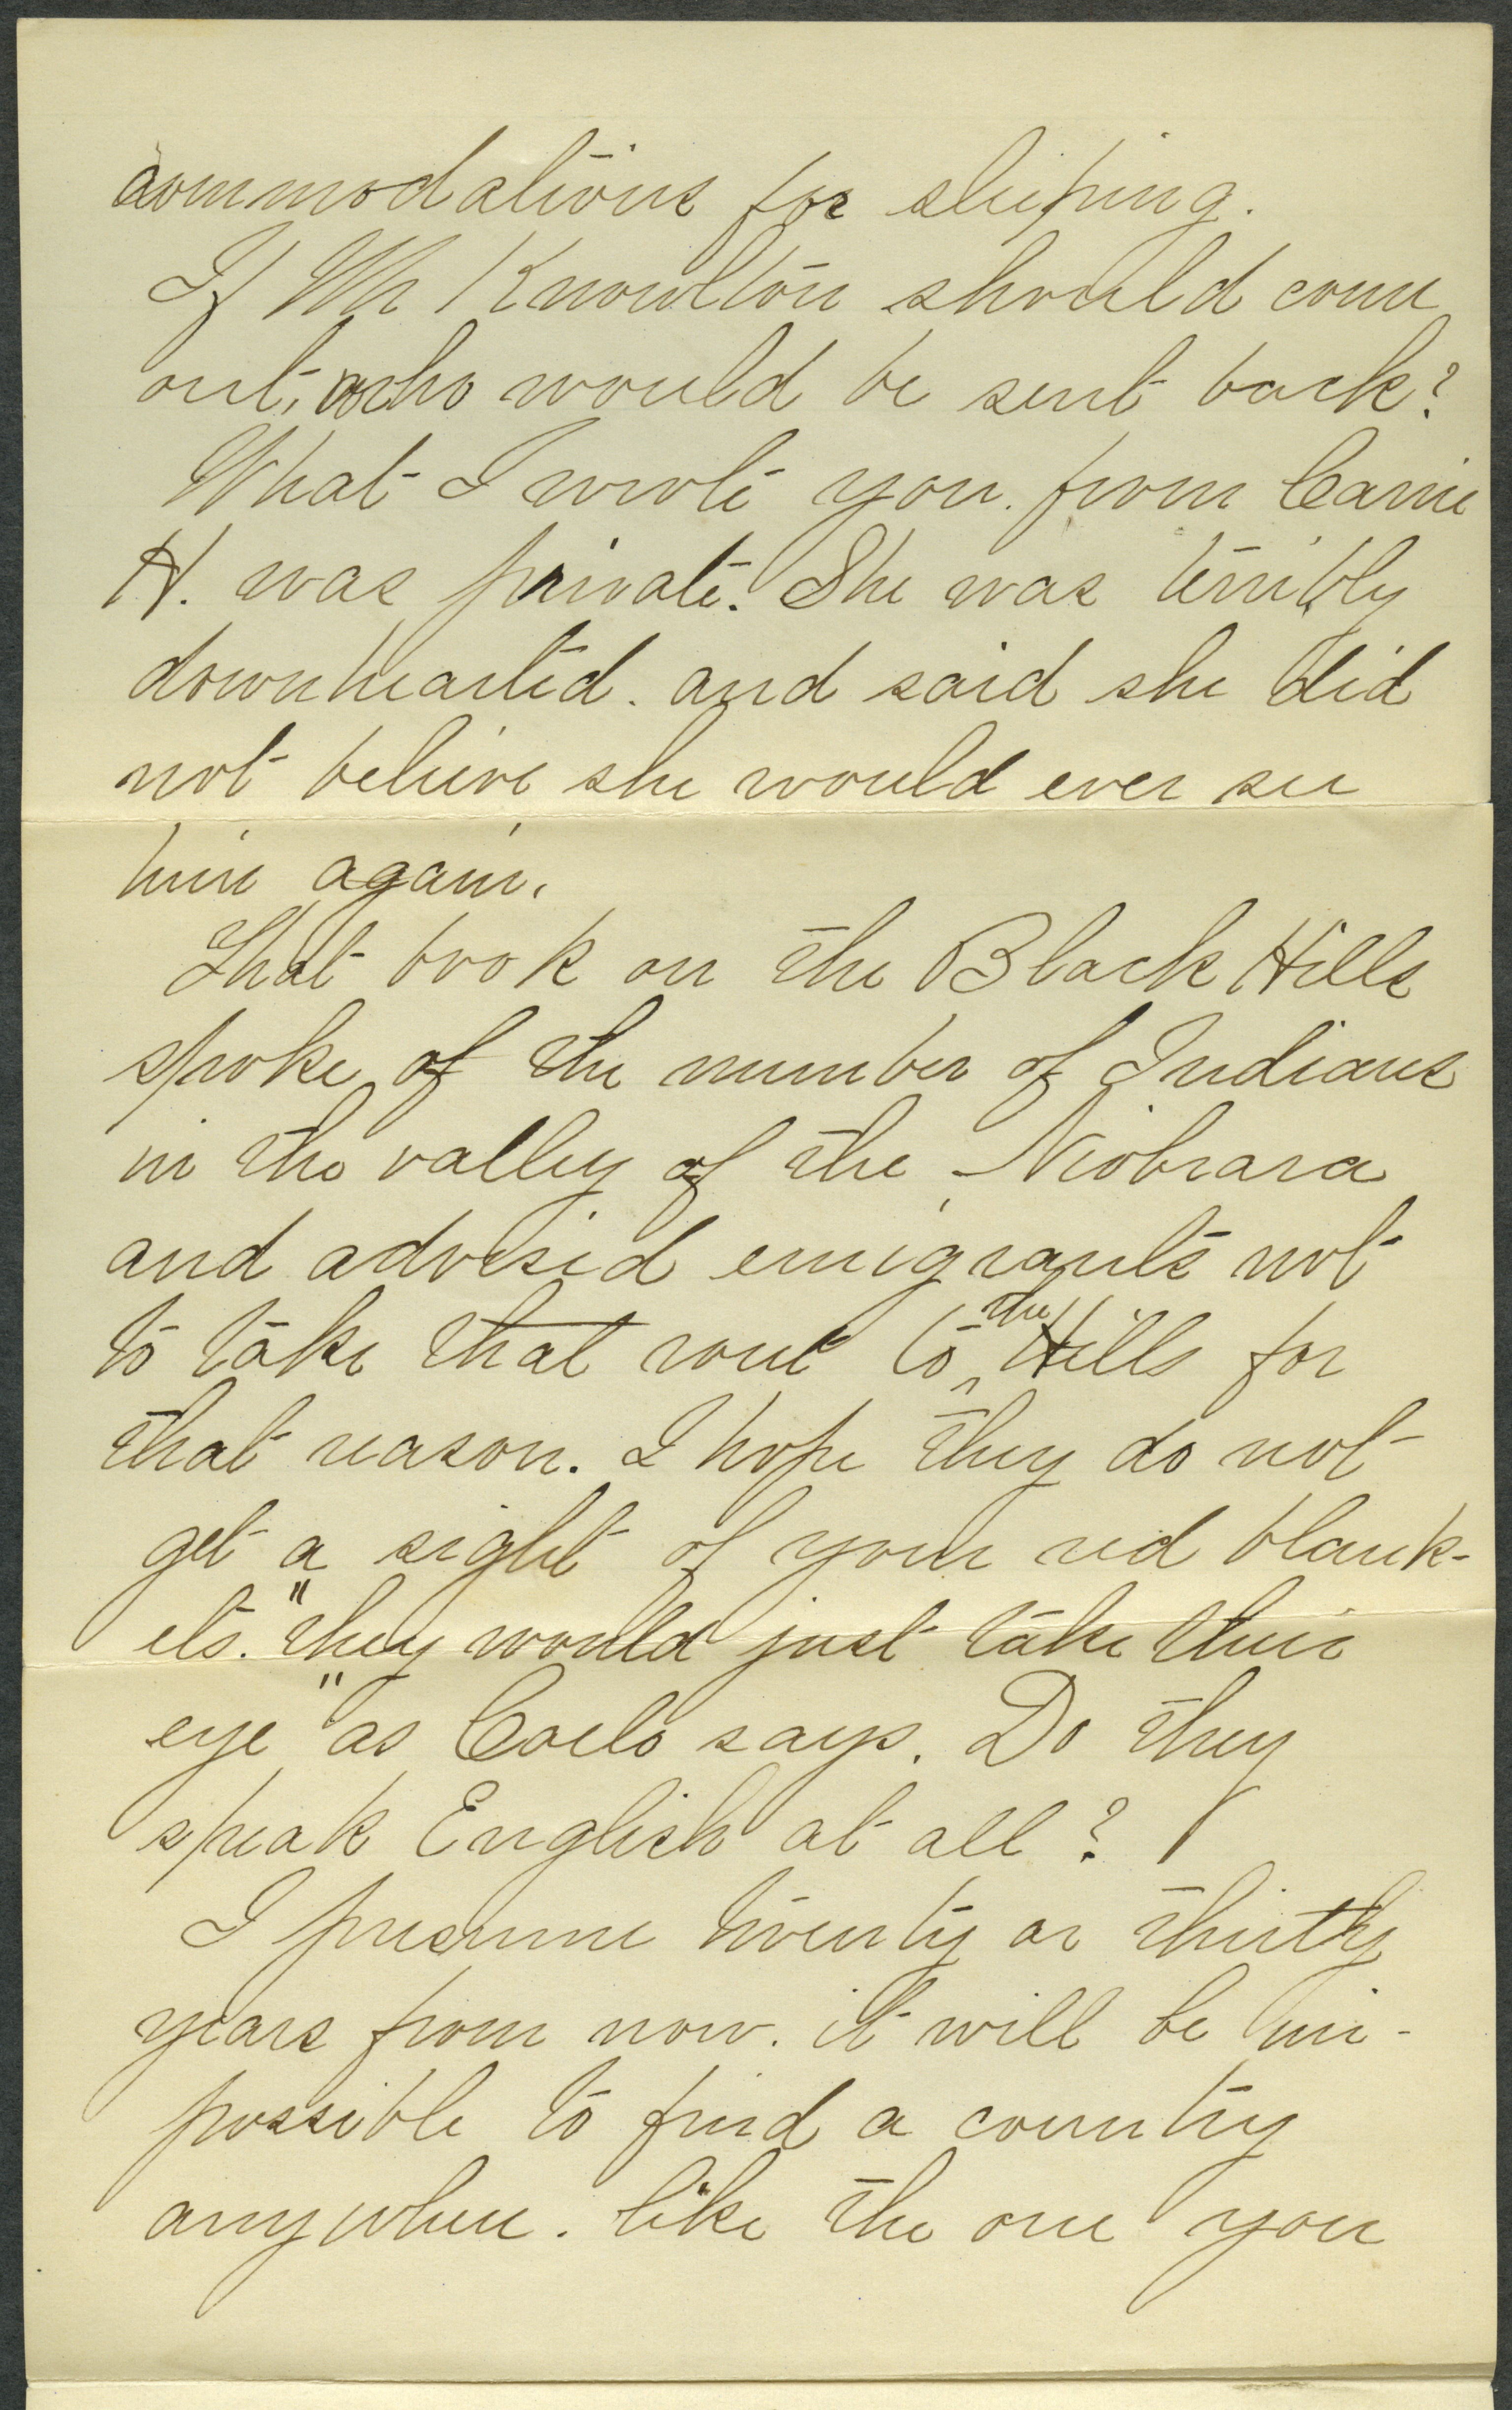 commodations for sleeping.
If Mr Knowlton should come
out, who would be sent back?
What I wrote you. from Carrie
H. was private. She was terribly
downhearted. and said she did
not believe she would ever see
him again.
That book on the Black Hills
spoke of the number of Indians
in the valley of the Niobrara
and advised emigrants not
to take that rout to the Hills for
that reason. I hope they do not
get a sight of your red blank-
ets. "they would just take their
eye" as Coelo says. Do they
speak English at all?
I presume twenty or thirty
years from now. it will be im-
possible to find a country
anywhere. like the one you